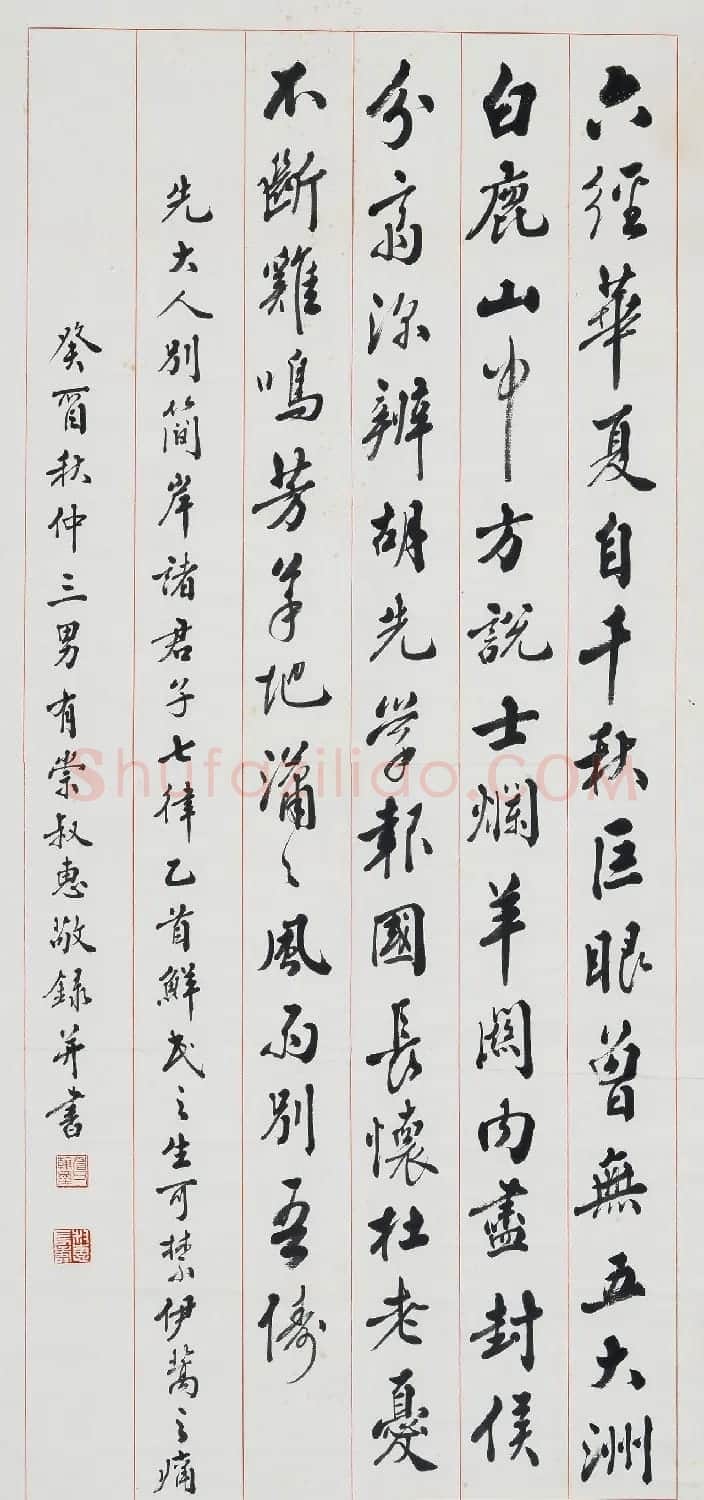 六經華夏自千秋巨眼曾無五大洲
白鹿山中方說士爛羊關内盡封侯
分齋深辨胡先学報國長懷杜老憂
不斷雞鳴芳草地瀟〻風雨別吾儔
先大人別簡岸諸君子七律乙首鮮民之生可禁伊蒿之痛
癸酉秋仲三男有崇叔惠敬録并書
Shufaziliao.COM